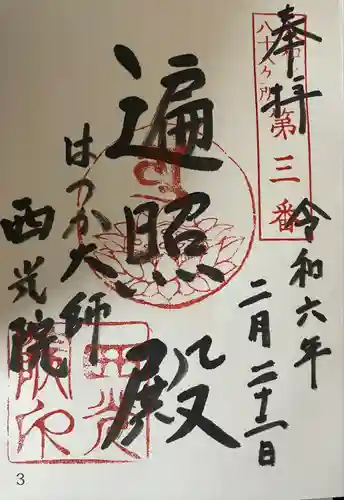 奉拝
八十八ヶ所第三番
令和六年
二月二十二日
遍照殿
はつか大師
西光院
3